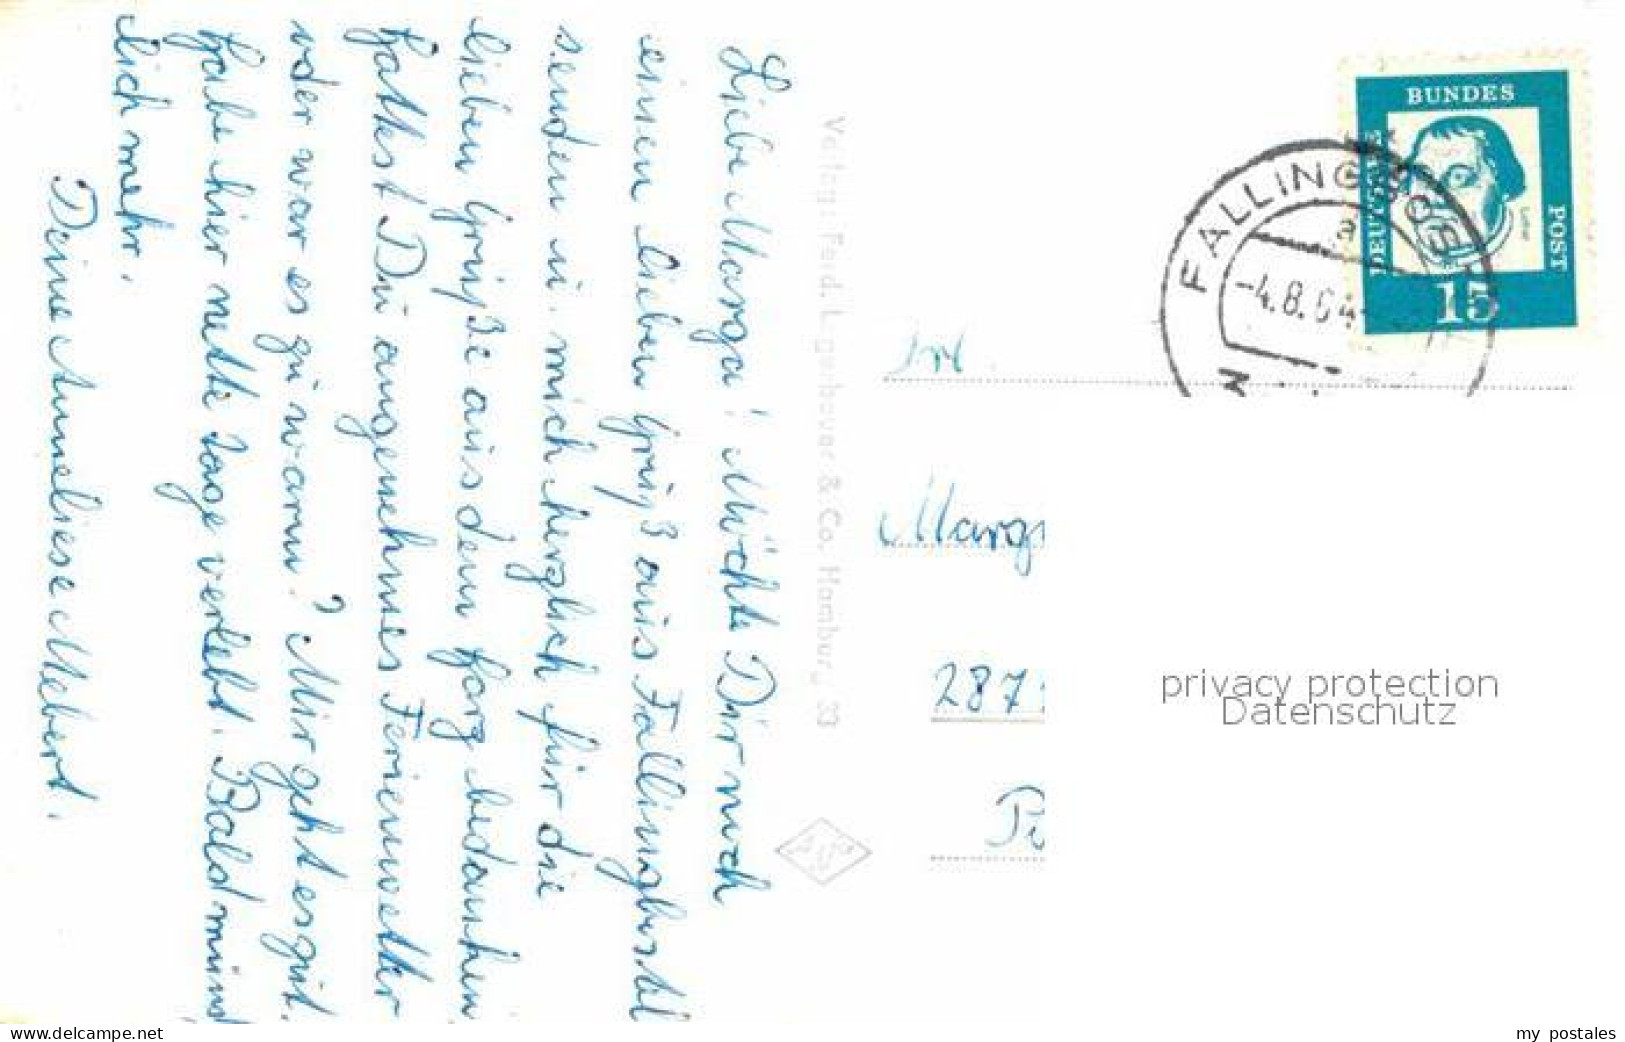 Liebe Marga! Möchte Dir noch
einen lieben Gruß aus Fallingbostel
senden u. mich herzlich für die
lieben Grüße aus dem Harz bedanken
Hattest Du angenehmes Ferienwetter
oder war es zu warm? Mir geht es gut.
Habe hier nette Tage verlebt. Bald münd
lich mehr.
Deine Anneliese Mebert.
Verlag: Ferd. Lagerbauer & Co. Hamburg 33
BUNDES
DEUTSCHE
POST
Luther
15
FALLINGBOSTEL
a
-4.8.64
Frl.
287
privacy protection
Datenschutz
www.delcampe.net
my_postales